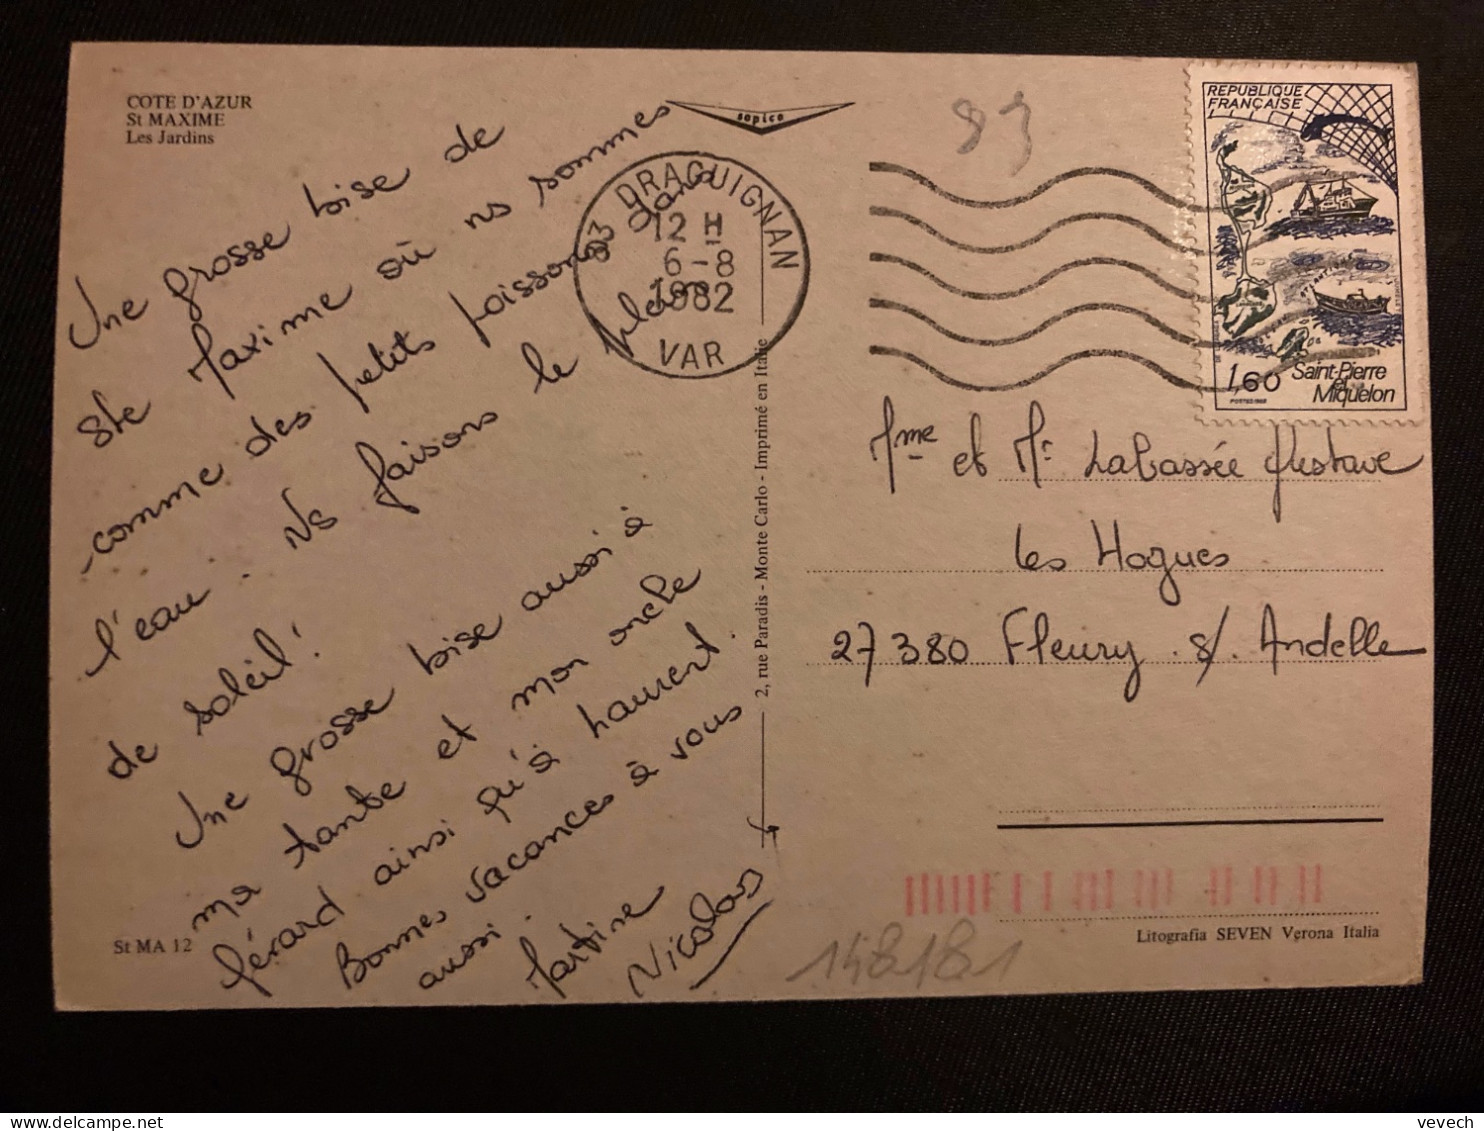 COTE D'AZUR
St MAXIME
Les Jardins
sopico
Une grosse bise de
Ste Maxime où ns sommes
comme des petits poissons dans
l'eau. Ns faisons le plein
de soleil!
Une grosse bise aussi à
ma tante et mon oncle
Gérard ainsi qu'à Laurent.
Bonnes vacances à vous
aussi.
Martine
Nicolas
St MA 12
2, rue Paradis - Monte Carlo - Imprimé en Italie
83 DRAGUIGNAN
12 H
6-8
1982
VAR
83
REPUBLIQUE
FRANÇAISE
1,60
Saint-Pierre
et
Miquelon
Mme et Mr Labassée Gustave
Les Hogues
27380 Fleury s/ Andelle
Litografia SEVEN Verona Italia
148181
vevech